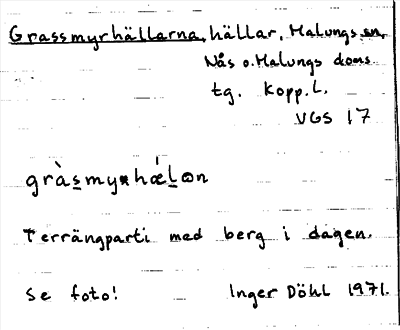 Grassmyrhällarna, hällar, Malungs sn,
Nås o. Malungs doms.
tg. Kopp.L.
VGS 17
Terrängparti med berg i dagen.
Se foto! Inger Döhl 1971.